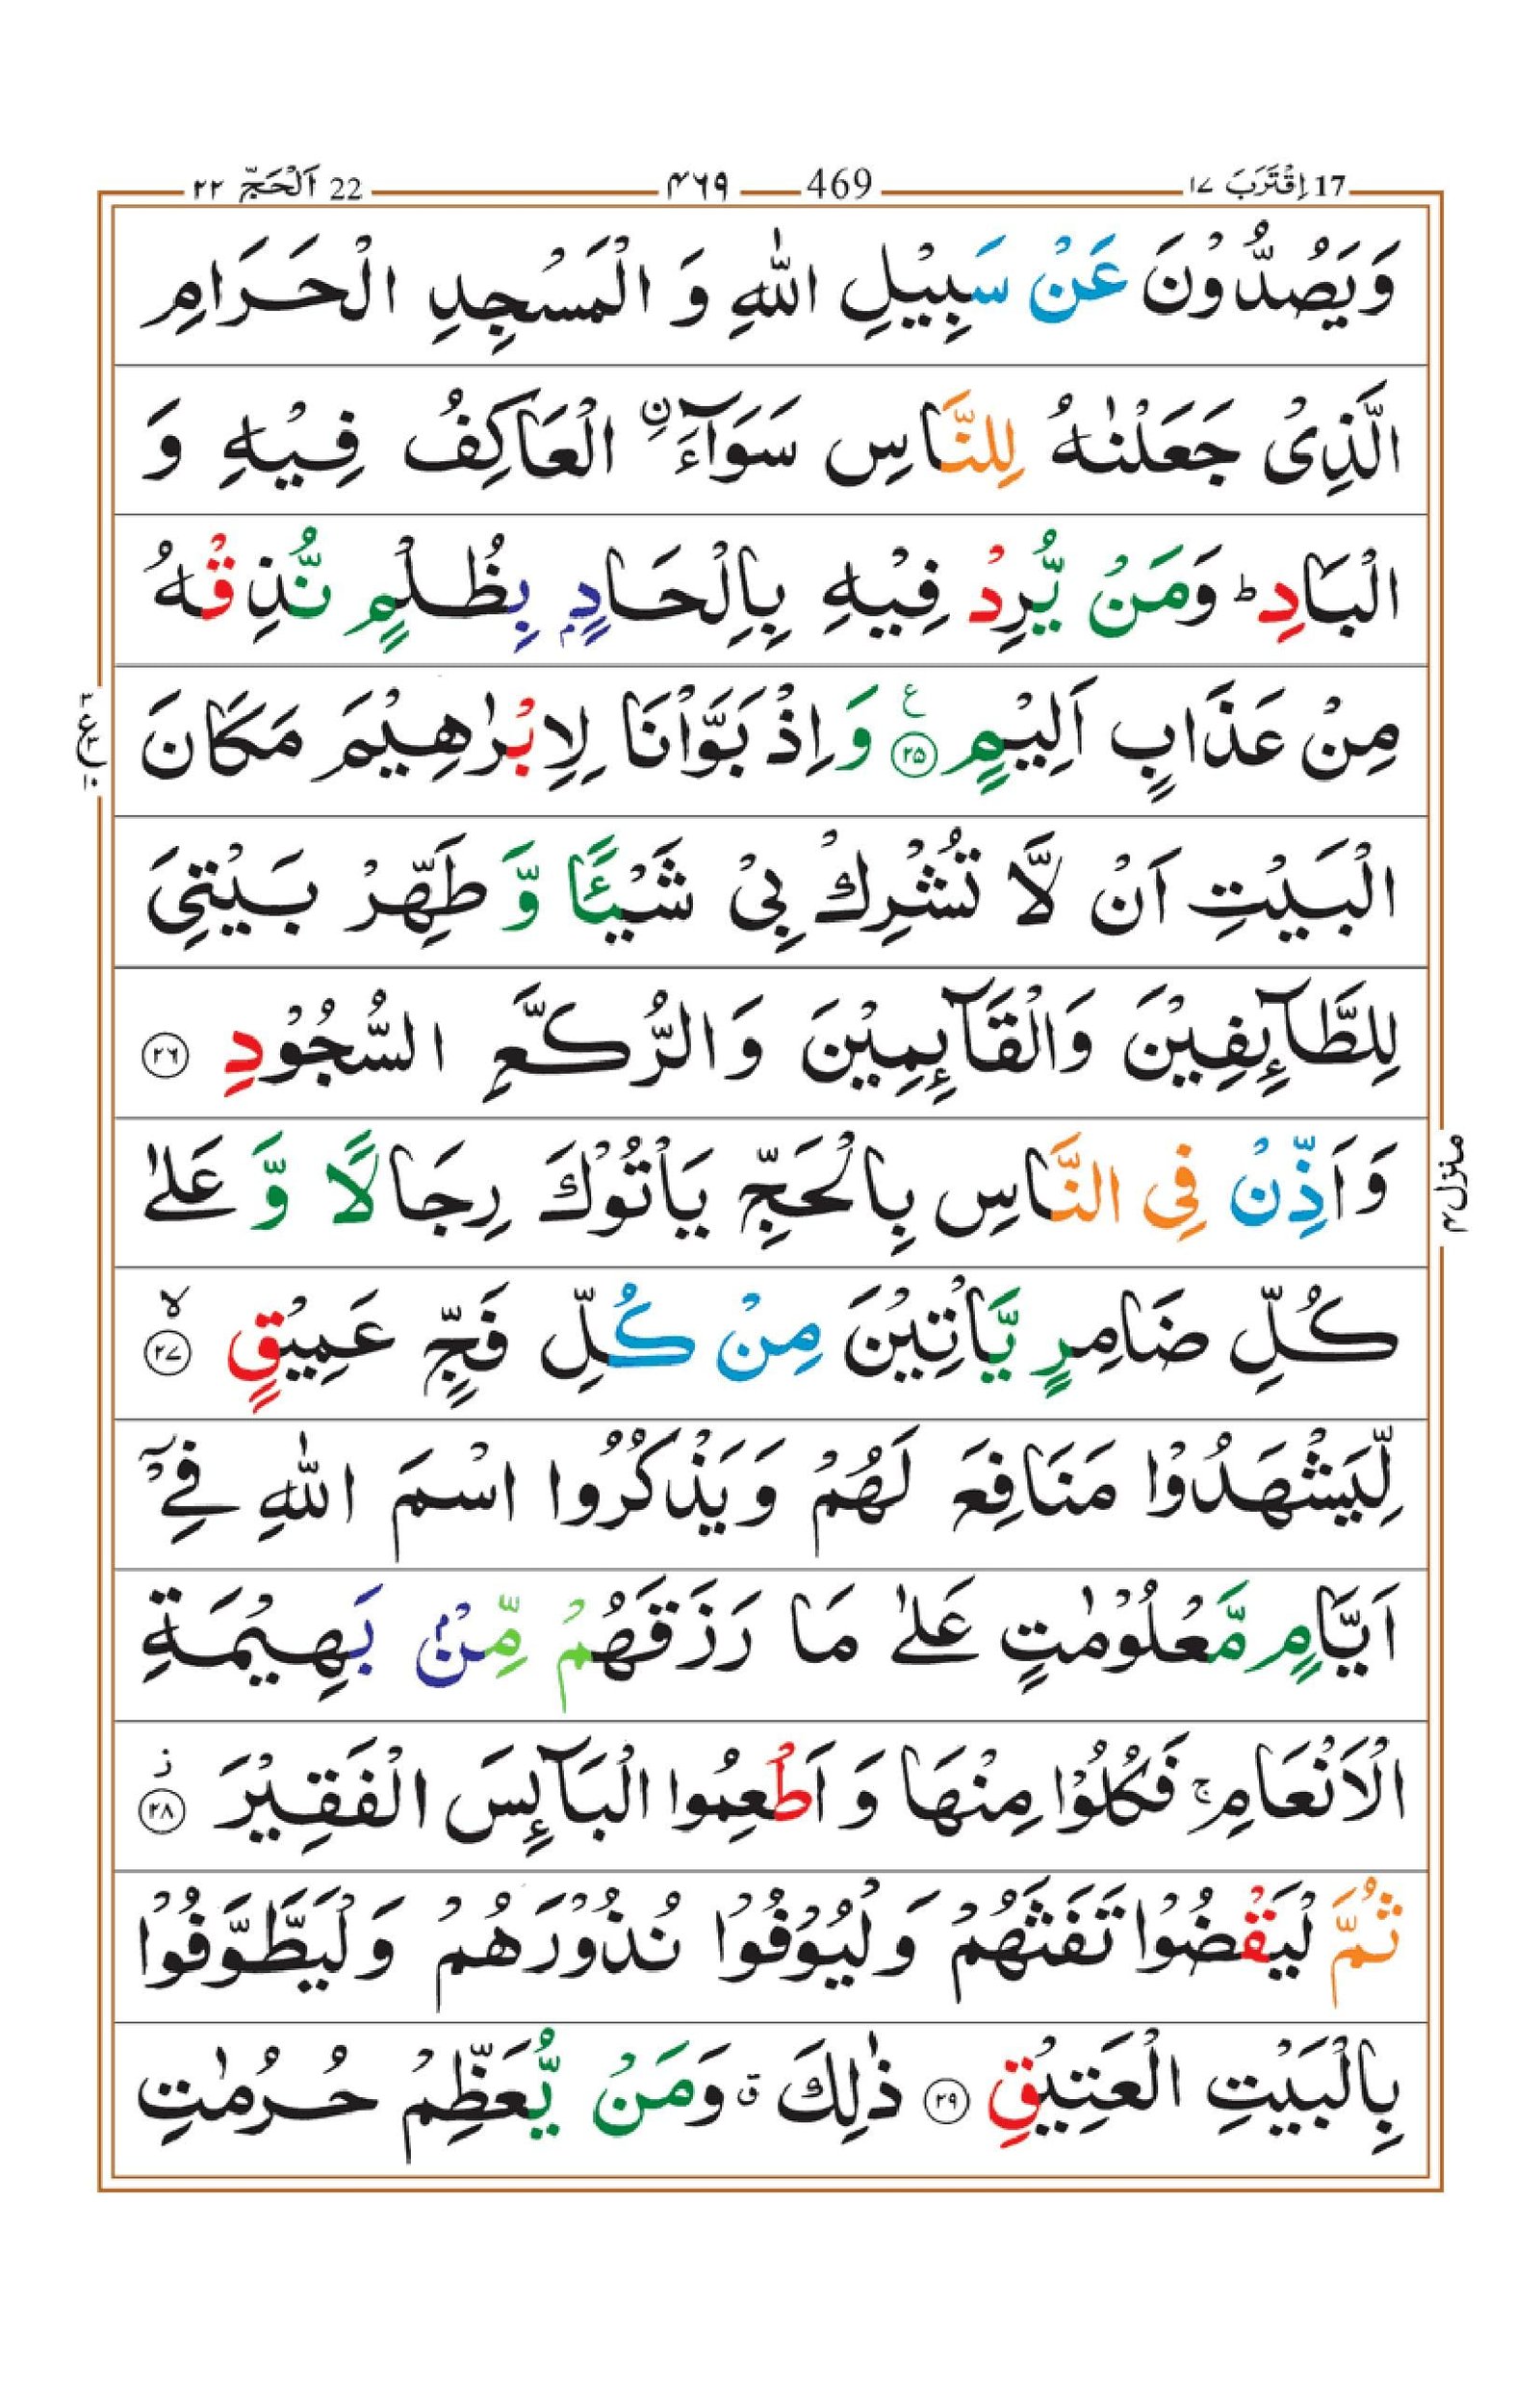 17 اِقْتَرَبَ ١٧
469 ۴۶۹
22 اَلْحَجّ ٢٢
وَيَصُدُّوْنَ عَنْ سَبِيْلِ اللّٰهِ وَ الْمَسْجِدِ الْحَرَامِ
الَّذِىْ جَعَلْنٰهُ لِلنَّاسِ سَوَآءَ ۨ الْعَاكِفُ فِيْهِ وَ
الْبَادِ ؕ وَمَنْ يُّرِدْ فِيْهِ بِاِلْحَادٍۭ بِظُلْمٍ نُّذِقْهُ
مِنْ عَذَابٍ اَلِيْمٍ ۧ ۲۵ وَ اِذْ بَوَّاْنَا لِاِبْرٰهِيْمَ مَكَانَ
الْبَيْتِ اَنْ لَّا تُشْرِكْ بِىْ شَيْــًٔا وَّ طَهِّرْ بَيْتِىَ
لِلطَّآئِفِيْنَ وَالْقَآئِمِيْنَ وَ الرُّكَّعِ السُّجُوْدِ ۲۶
وَ اَذِّنْ فِى النَّاسِ بِالْحَجِّ يَاْتُوْكَ رِجَالًا وَّ عَلٰى
كُلِّ ضَامِرٍ يَّاْتِيْنَ مِنْ كُلِّ فَجٍّ عَمِيْقٍ ۙ ۲۷
لِّيَشْهَدُوْا مَنَافِعَ لَهُمْ وَيَذْكُرُوا اسْمَ اللّٰهِ فِىْۤ
اَيَّامٍ مَّعْلُوْمٰتٍ عَلٰى مَا رَزَقَهُمْ مِّنْۢ بَهِيْمَةِ
الْاَنْعَامِ ۚ فَكُلُوْا مِنْهَا وَ اَطْعِمُوا الْبَآئِسَ الْفَقِيْرَ ز ۲۸
ثُمَّ لْيَقْضُوْا تَفَثَهُمْ وَلْيُوْفُوْا نُذُوْرَهُمْ وَلْيَطَّوَّفُوْا
بِالْبَيْتِ الْعَتِيْقِ ۲۹ ذٰلِكَ ق وَمَنْ يُّعَظِّمْ حُرُمٰتِ
منزل۴